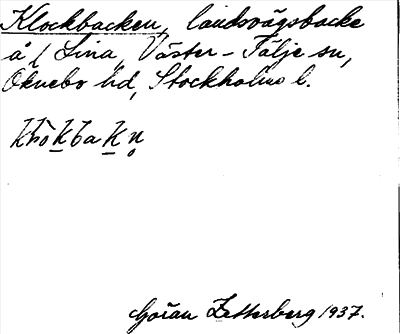 Klockbacken, landsvägsbacke
å Lina, Väster-Tälje sn,
Öknebo hd, Stockholms l.
Göran Zetterberg 1937.